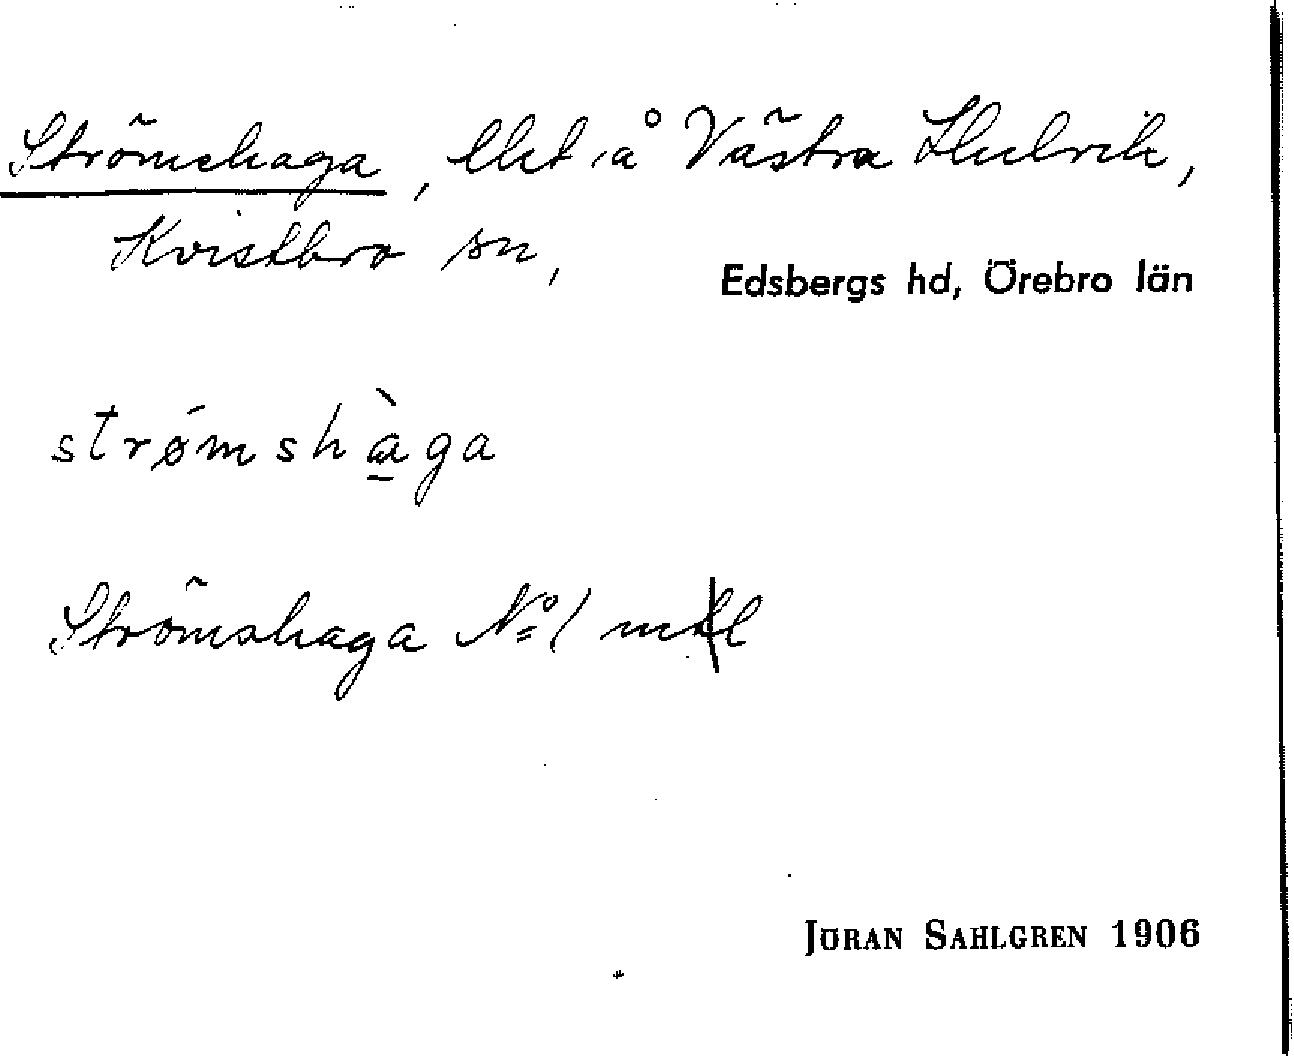 Strömshaga, lht å Västra Hulvik,
Kvistbro sn,
Edsbergs hd, Örebro län
strǿmshàga
Strömshaga No 1
JÖRAN SAHLGREN 1906